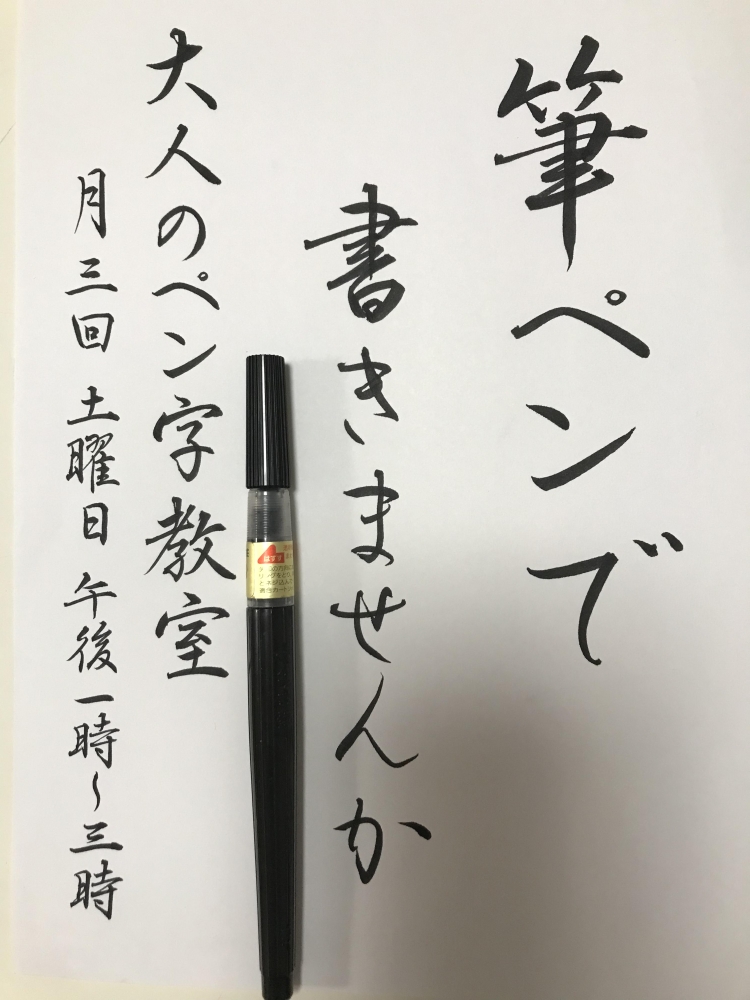 筆ペンで
書きませんか
大人のペン字教室
月三回 土曜日 午後一時～三時
はずす